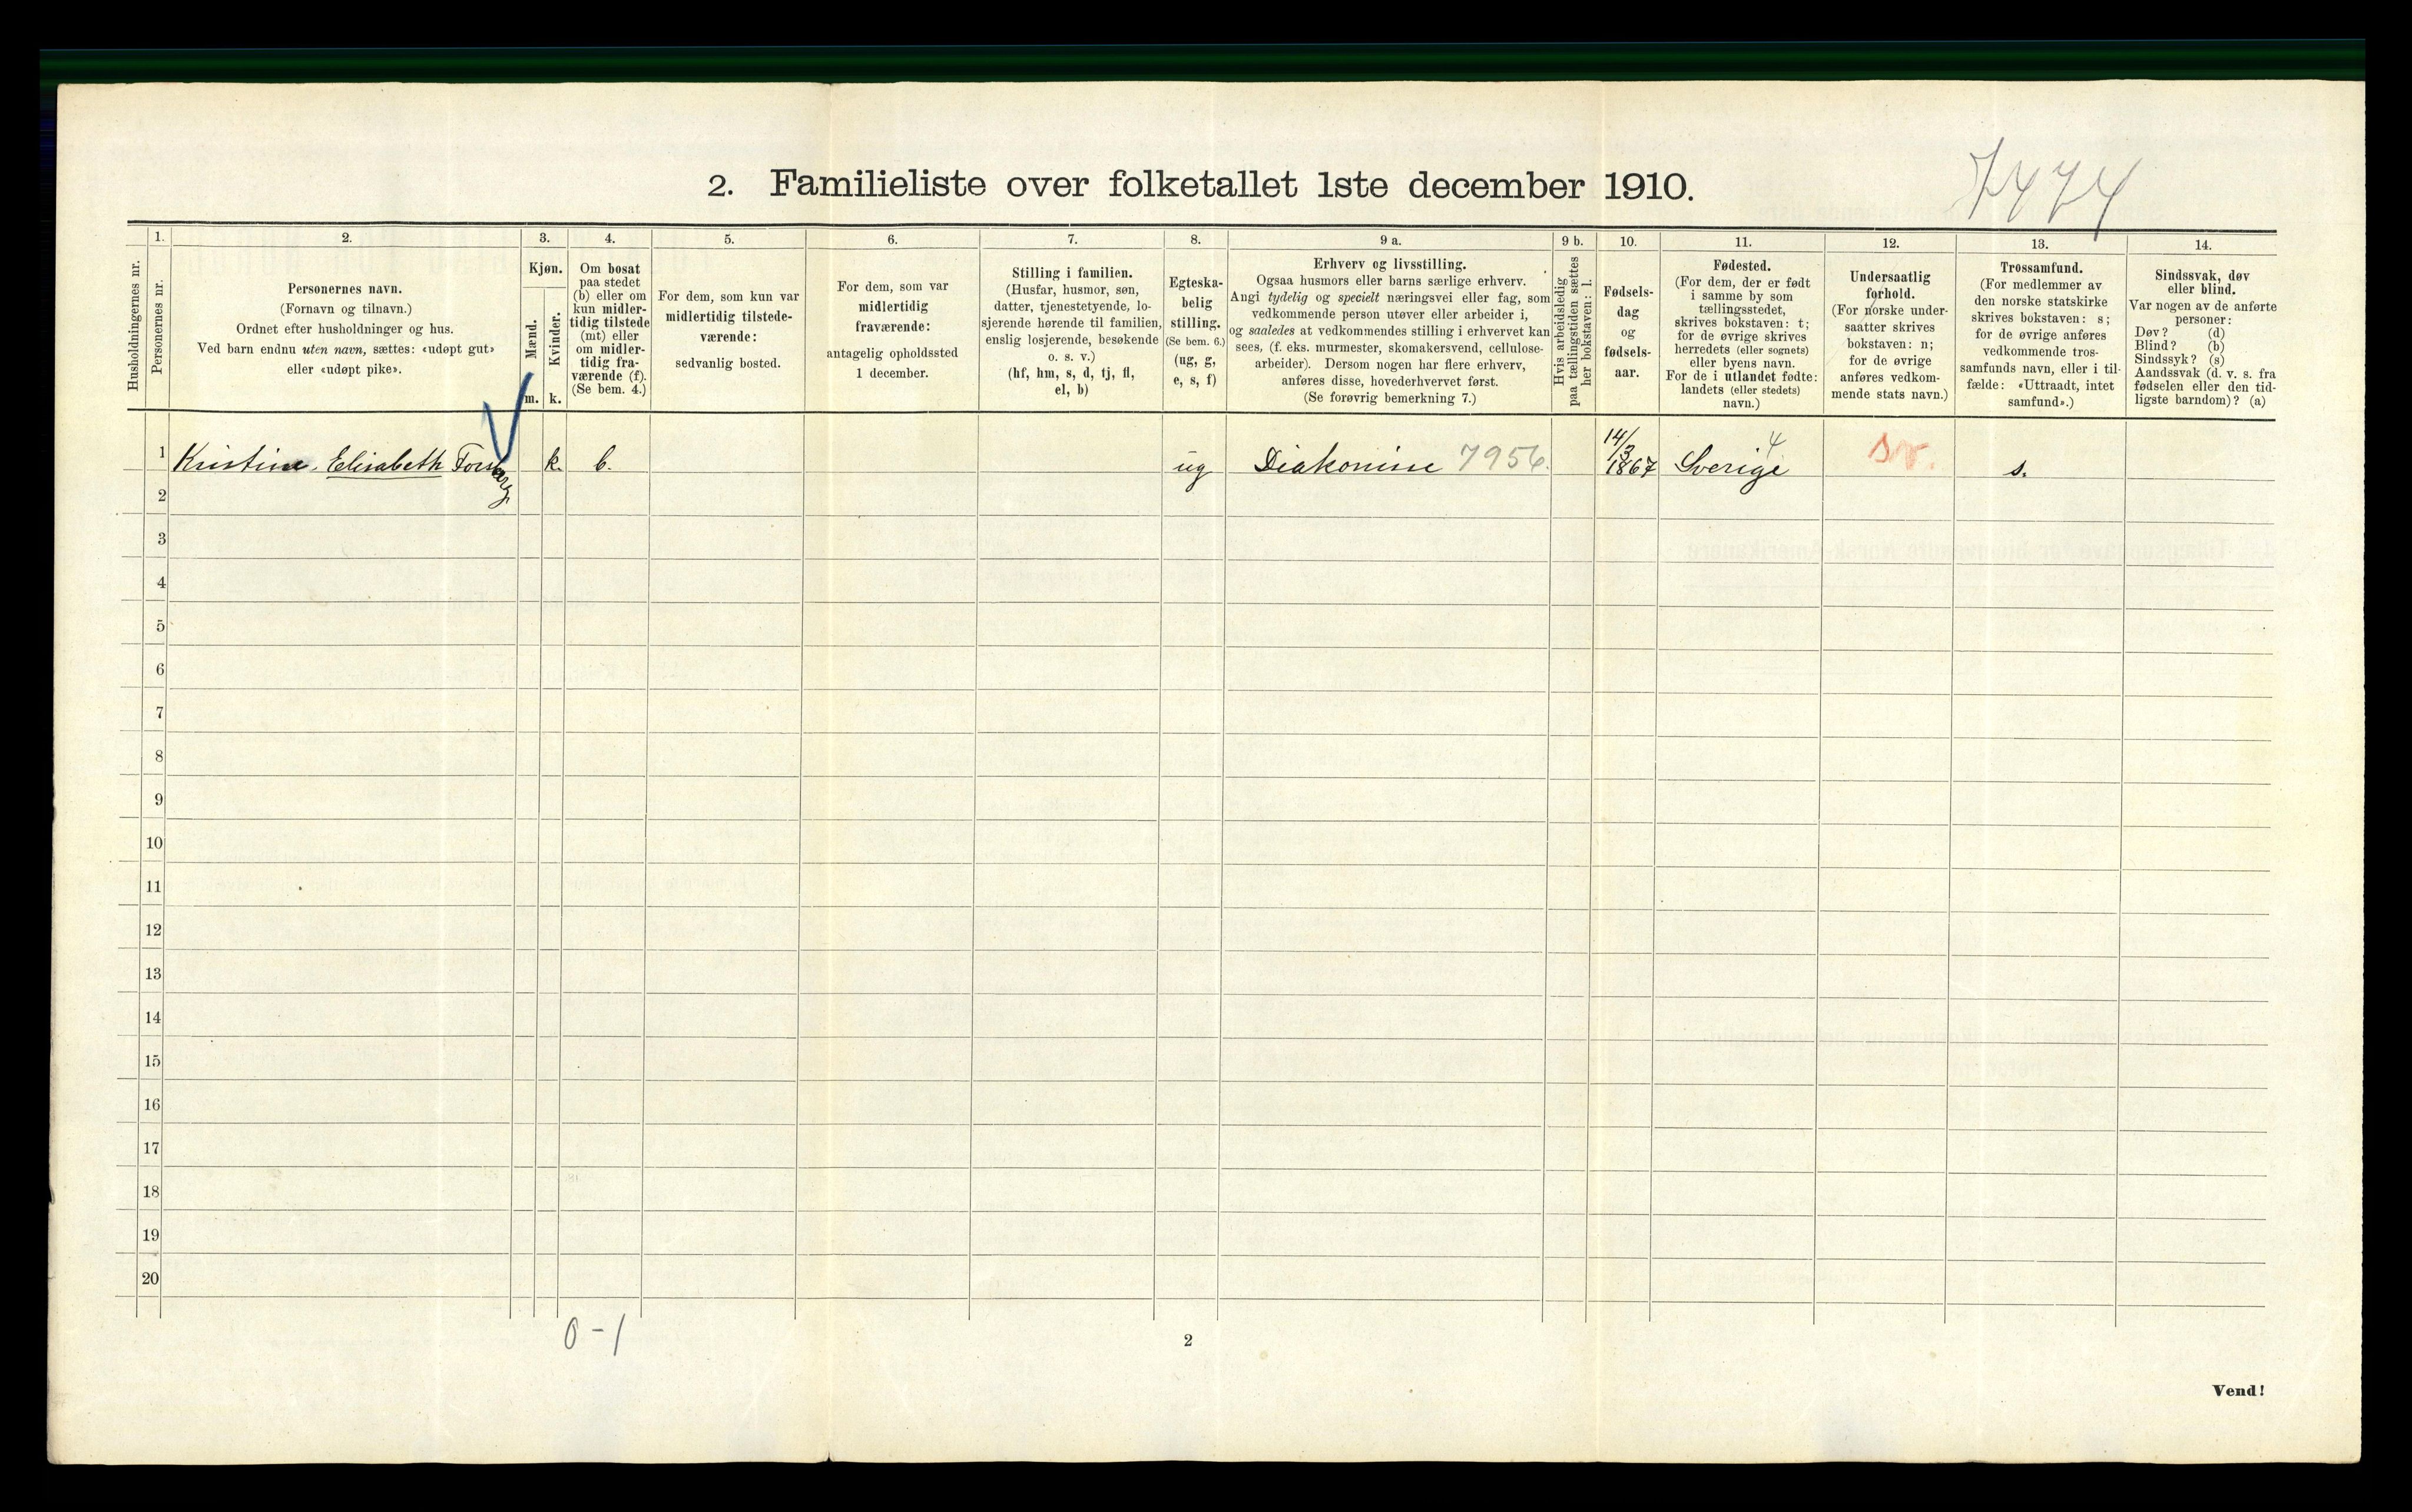 7474
2. Familieliste over folketallet 1ste december 1910.
Husholdningernes nr.
1.
Personernes nr.
2.
Personernes navn.
(Fornavn og tilnavn.)
Ordnet efter husholdninger og hus.
Ved barn endnu uten navn, sættes: «udøpt gut»
eller «udøpt pike».
3.
Kjøn.
Mænd.
Kvinder.
m. k.
4.
Om bosat
paa stedet
(b) eller om
kun midler-
tidig tilstede
(mt) eller
om midler-
tidig fra-
værende (f).
(Se bem. 4.)
5.
For dem, som kun var
midlertidig tilstede-
værende:
sedvanlig bosted.
6.
For dem, som var
midlertidig
fraværende:
antagelig opholdssted
1 december.
7.
Stilling i familien.
(Husfar, husmor, søn,
datter, tjenestetyende, lo-
sjerende hørende til familien,
enslig losjerende, besøkende
o. s. v.)
(hf, hm, s, d, tj, fl,
el, b)
8.
Egteska-
belig
stilling.
(Se bem. 6.)
(ug, g,
e, s, f)
9 a.
Erhverv og livsstilling.
Ogsaa husmors eller barns særlige erhverv.
Angi tydelig og specielt næringsvei eller fag, som
vedkommende person utøver eller arbeider i,
og saaledes at vedkommendes stilling i erhvervet kan
sees, (f. eks. murmester, skomakersvend, cellulose-
arbeider). Dersom nogen har flere erhverv,
anføres disse, hovederhvervet først.
(Se forøvrig bemerkning 7.)
9 b.
Hvis arbeidsledig
paa tællingstiden sættes
her bokstaven: l.
10.
Fødsels-
dag
og
fødsels-
aar.
11.
Fødested.
(For dem, der er født
i samme by som
tællingsstedet,
skrives bokstaven: t;
for de øvrige skrives
herredets (eller sognets)
eller byens navn.
For de i utlandet fødte:
landets (eller stedets)
navn.)
12.
Undersaatlig
forhold.
(For norske under-
saatter skrives
bokstaven: n;
for de øvrige
anføres vedkom-
mende stats navn.)
13.
Trossamfund.
(For medlemmer av
den norske statskirke
skrives bokstaven: s;
for de øvrige anføres
vedkommende tros-
samfunds navn, eller i til-
fælde: «Uttraadt, intet
samfund».)
14.
Sindssvak, døv
eller blind.
Var nogen av de anførte
personer:
Døv? (d)
Blind? (b)
Sindssyk? (s)
Aandssvak (d. v. s. fra
fødselen eller den tid-
ligste barndom)? (a)
1 Kristine Elisabeth Forsberg k. b. ug Diakonisse 7956. 14/3 1867 Sverige 4 sv. s.
2
3
4
5
6
7
8
9
10
11
12
13
14
15
16
17
18
19
20
0-1
2
Vend!